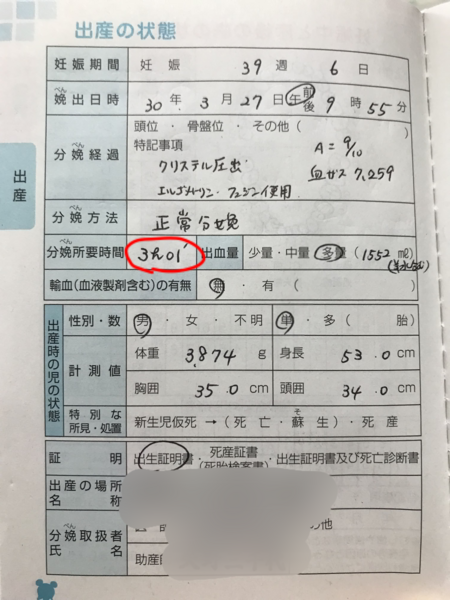 出産の状態
妊娠期間 妊娠 39週 6日
べん
娩出日時 30年 3月 27日 午前後 9時 55分
頭位・骨盤位・その他( )
分娩経過 特記事項 A=9/10
クリステレル圧出 血ガス 7.259
エルゴメトリン・アトニン使用
分娩方法 正常分娩
分娩所要時間 3h01' 出血量 少量・中量・多量(1552 ml)
(羊水込)
輸血(血液製剤含む)の有無 無・有( )
出産
出産時の児の状態
性別・数 男・女・不明 単・多( 胎)
計測値 体重 3,874 g 身長 53.0 cm
胸囲 35.0 cm 頭囲 34.0 cm
特別な所見・処置 新生児仮死→(死亡・蘇生)・死産
証明 出生証明書・死産証書(死胎検案書)・出生証明書及び死亡診断書
出産の場所
名称
分娩取扱者
氏名
の他
助産